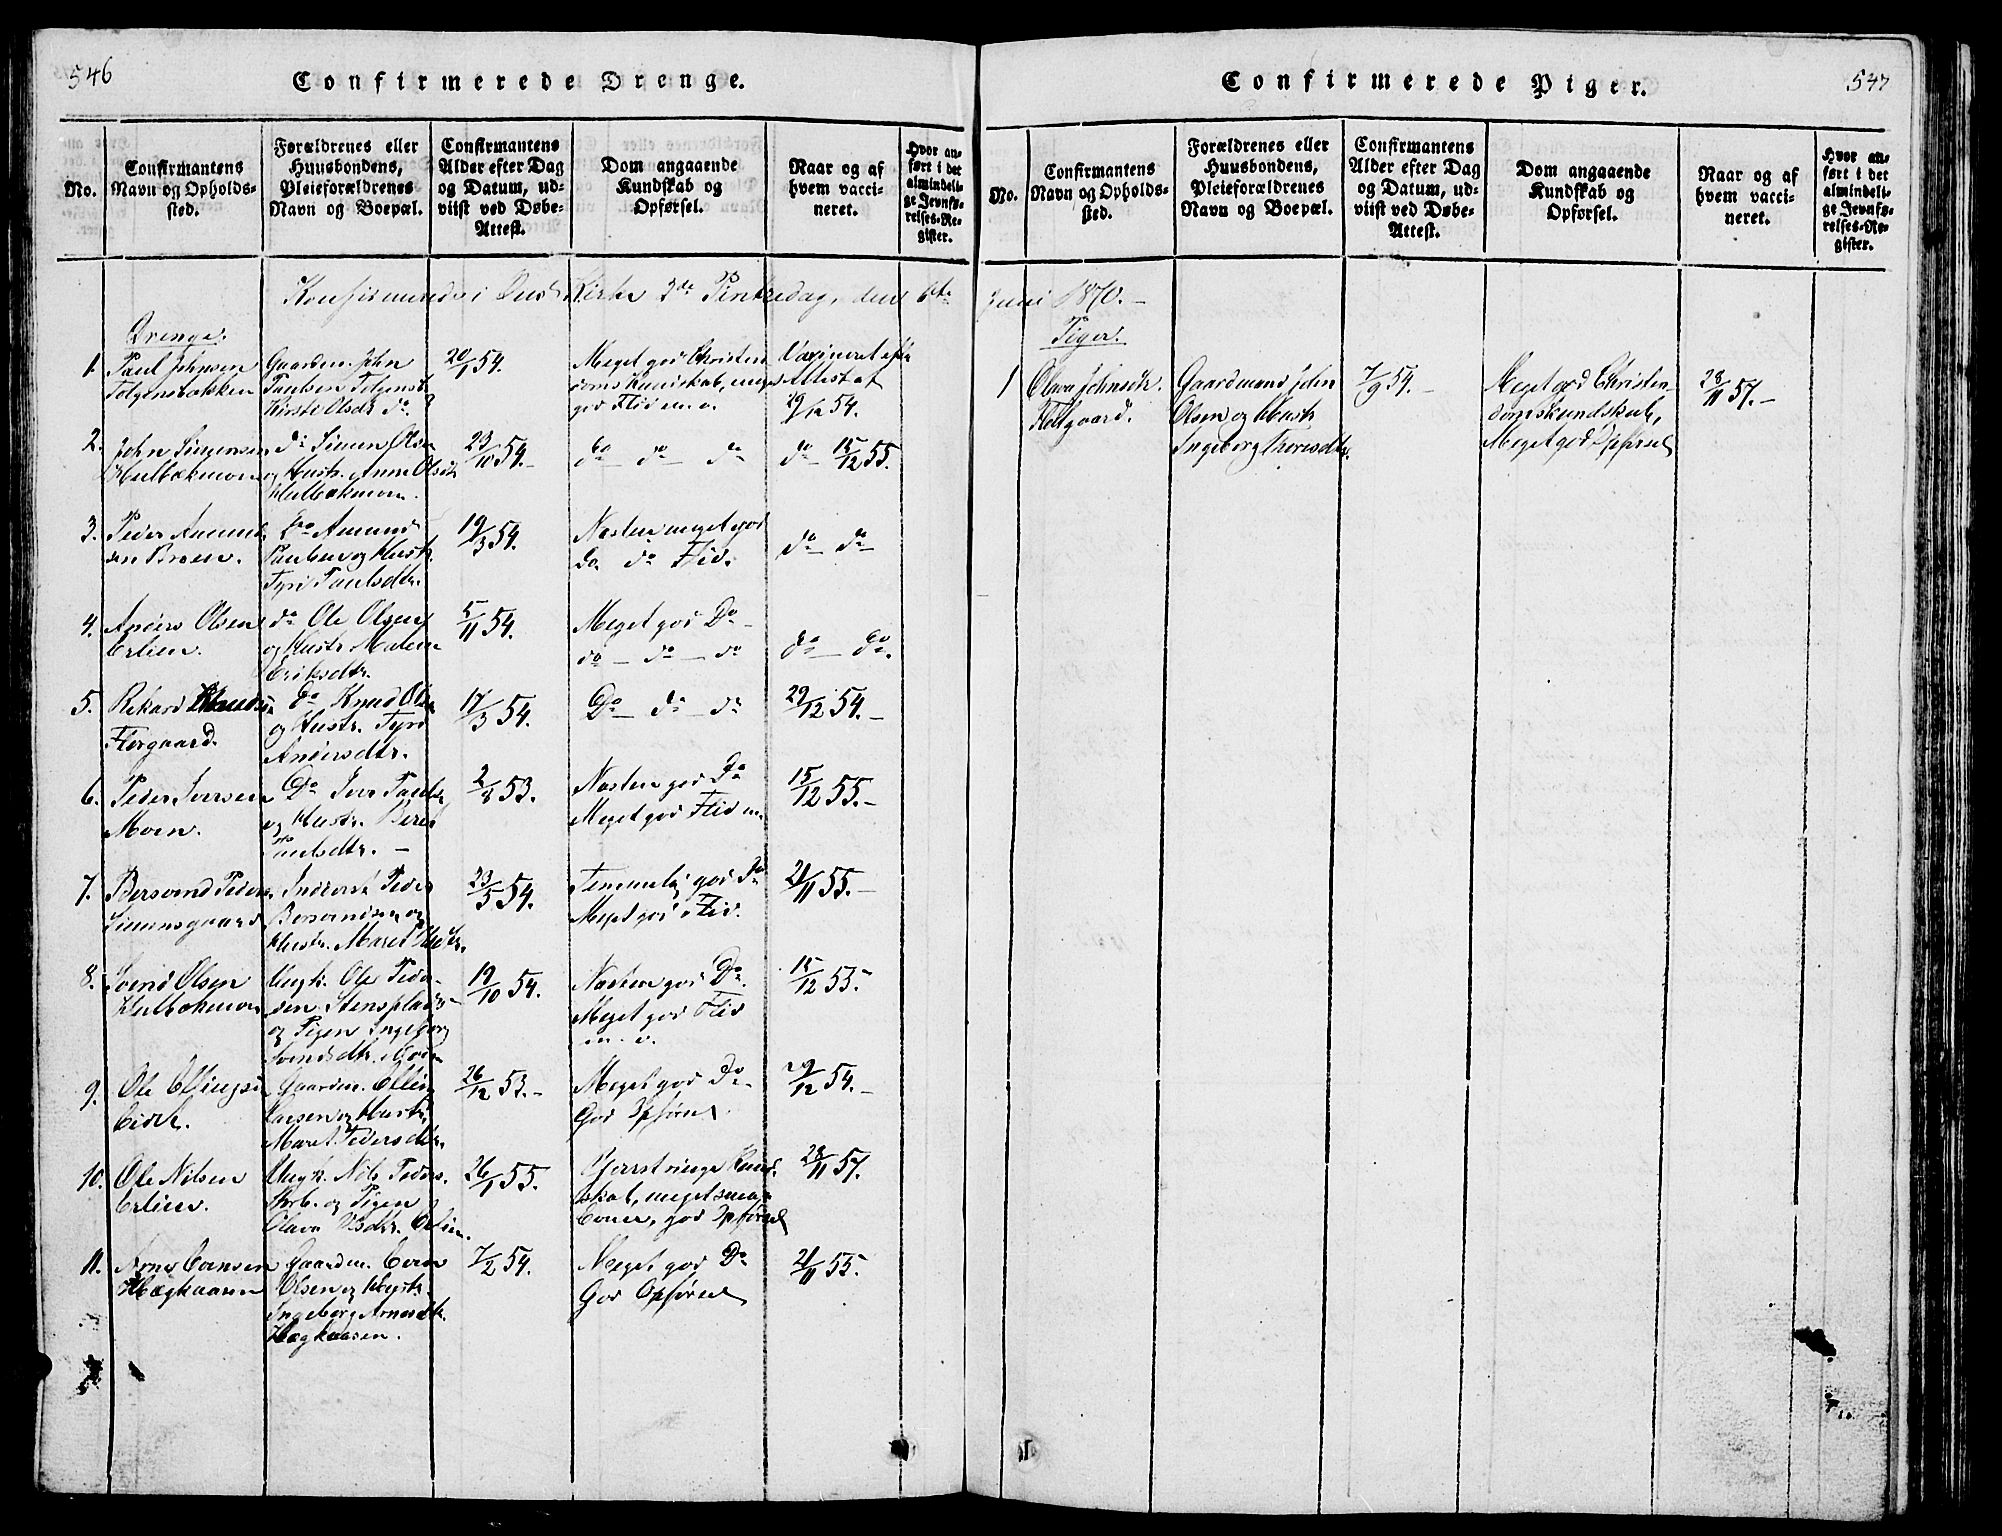 546
Confirmerede Drenge.
No.
Confirmantens
Navn og Opholds-
sted.
Forældrenes eller
Huusbondens,
Pleieforældrenes
Navn og Boepæl.
Confirmantens
Alder efter Dag
og Datum, ud-
viist ved Døbe-
Attest.
Dom angaaende
Kundskab og
Opførsel.
Naar og af
hvem vacci-
neret.
Hvor an-
ført i det
almindeli-
ge Jevnfø-
relses-Re-
gister.
i Kirke 2de Pintsedag, den 6te
Drenge.
1. Paul Johnsen
Gaardm. John
Paulsen
20/1 54.
Meget god Christen
doms Kundskab, meget
god Flid m. v.
Vaxineret efter
Attest af
19/12 54.
2. John Simensen
do Simen Olsen
og Hustr. Anne Olsdtr
23/10 54.-
do do do
do 15/12 55.
3. Peder Amund
sen Broen.
do Amund
Paulsen og Hustr.
Tyri Paulsdtr.
19/3 54.
Næsten meget god
do. do Flid.
do do
4. Anders Olsen
Erlien.
do Ole Olsen
og Hustr. Malene
Eriksdtr.
5/11 54.
Meget god Do -
do - do - do
do - do.
5. Rikard Knudsen
Flergaard.
do Knud Olsen
og Hustr. Tyri
Andersdtr.
17/3 54.
Do - do - do
29/12 54.-
6. Peder Iversen
Moen.
Do Iver Paulsen
og Hustr. Beret
Paulsdtr. -
2/8 53.
Næsten god Do
Meget god Flid m.
15/12 55.-
7. Bersvend Peders.
Simensgaard
Inderst Peder
Bersvendsen og
Hustr. Maret
23/5 54.
Temmelig god Do
Meget god Flid.
21/11 55.-
8. Svend Olsen
Ungk. Ole Peder-
sen
og Pigen Ingeborg
Svendsdtr.
19/10 54.
Næsten god Do.
Meget god Flid
m. v.
15/12 55-
9. Ole Ellingsen
Gaardm. Elling
Larsen og Hustr.
Maret Pedersdtr.
26/12 53.-
Meget god Do-
God Opførsel
29/12 54.-
10. Ole Nilsen
Erlien.
Ungk. Nils Peders.
og Pigen
Olava
26/1 55.
Yderst ringe Kund-
skab, meget smaa
Evner, god Opførsel
28/11 57.
11. Arne Evensen
Gaardm. Even
Olsen og Hustr.
Ingeborg Arnesdtr.
7/2 54.
Meget god Do
God Opførsel
21/11 55.
547
Confirmerede Piger.
No.
Confirmantens
Navn og Opholds-
sted.
Forældrenes eller
Huusbondens,
Pleieforældrenes
Navn og Boepæl.
Confirmantens
Alder efter Dag
og Datum, ud-
viist ved Døbe-
Attest.
Dom angaaende
Kundskab og
Opførsel.
Naar og af
hvem vacci-
neret.
Hvor an-
ført i det
almindeli-
ge Jevnfø-
relses-Re-
gister.
Juni 1870.-
Piger.
1 Olava Johnsdtr.
Gaardmand John
Olsen og Hustr.
Ingeborg Thoresdtr.
7/9 54.-
Meget god Christen-
domskundskab,
Meget god Opførsel
28/11 57.-